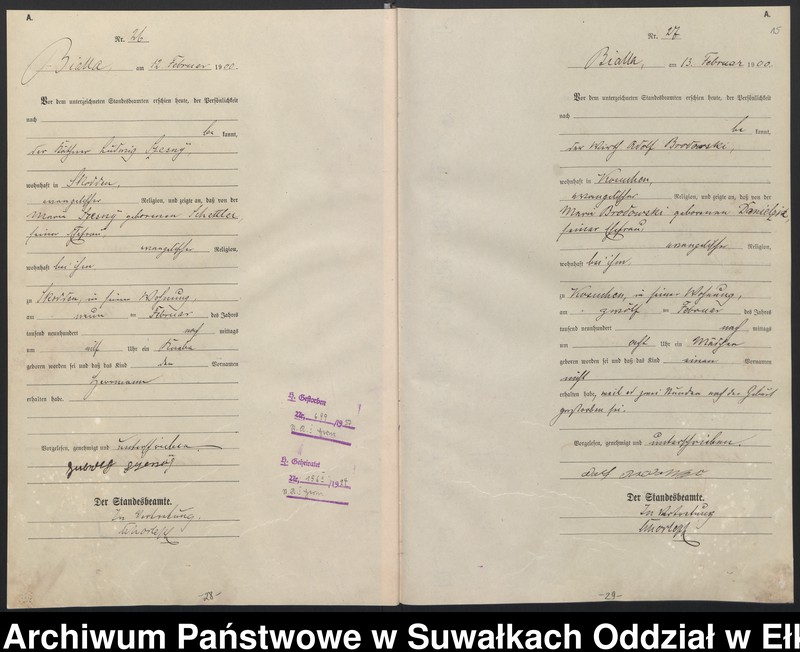 A.
Nr. 26
Bialla, am 12 Februar 1900.
Vor dem unterzeichneten Standesbeamten erschien heute, der Persönlichkeit
nach
be kannt,
der Käthner Ludwig Szesny
wohnhaft in Skodden,
evangelischer Religion, und zeigte an, daß von der
Marie Szesny geborenen Schettler,
seiner Ehefrau,
evangelischer Religion,
wohnhaft bei ihm
zu Skodden, in seiner Wohnung,
am neun ten Februar des Jahres
tausend neunhundert nach mittags
um elf Uhr ein Knabe
geboren worden sei und daß das Kind den Vornamen
Herrmann
erhalten habe.
Vorgelesen, genehmigt und unterschrieben.
Der Standesbeamte.
In Vertretung.
-28-
H. Gestorben
Nr. 699 /1957
H. Geheiratet
Nr.
A.
Nr. 27
Bialla, am 13 Februar 1900.
Vor dem unterzeichneten Standesbeamten erschien heute, der Persönlichkeit
nach
be kannt,
der Wirth Adolf Brodowski,
wohnhaft in
evangelischer Religion, und zeigte an, daß von der
Marie Brodowski geborenen
seiner Ehefrau
evangelischer Religion,
wohnhaft bei ihm.
zu in seiner Wohnung,
am zwölf ten Februar des Jahres
tausend neunhundert nach mittags
um acht Uhr ein Mädchen
geboren worden sei und daß das Kind einen Vornamen
nicht
erhalten habe, weil es zwei Stunden nach der Geburt
gestorben sei.
Vorgelesen, genehmigt und unterschrieben.
Der Standesbeamte.
In Vertretung
-29-
Archiwum Państwowe w Suwałkach Oddział w Ełk